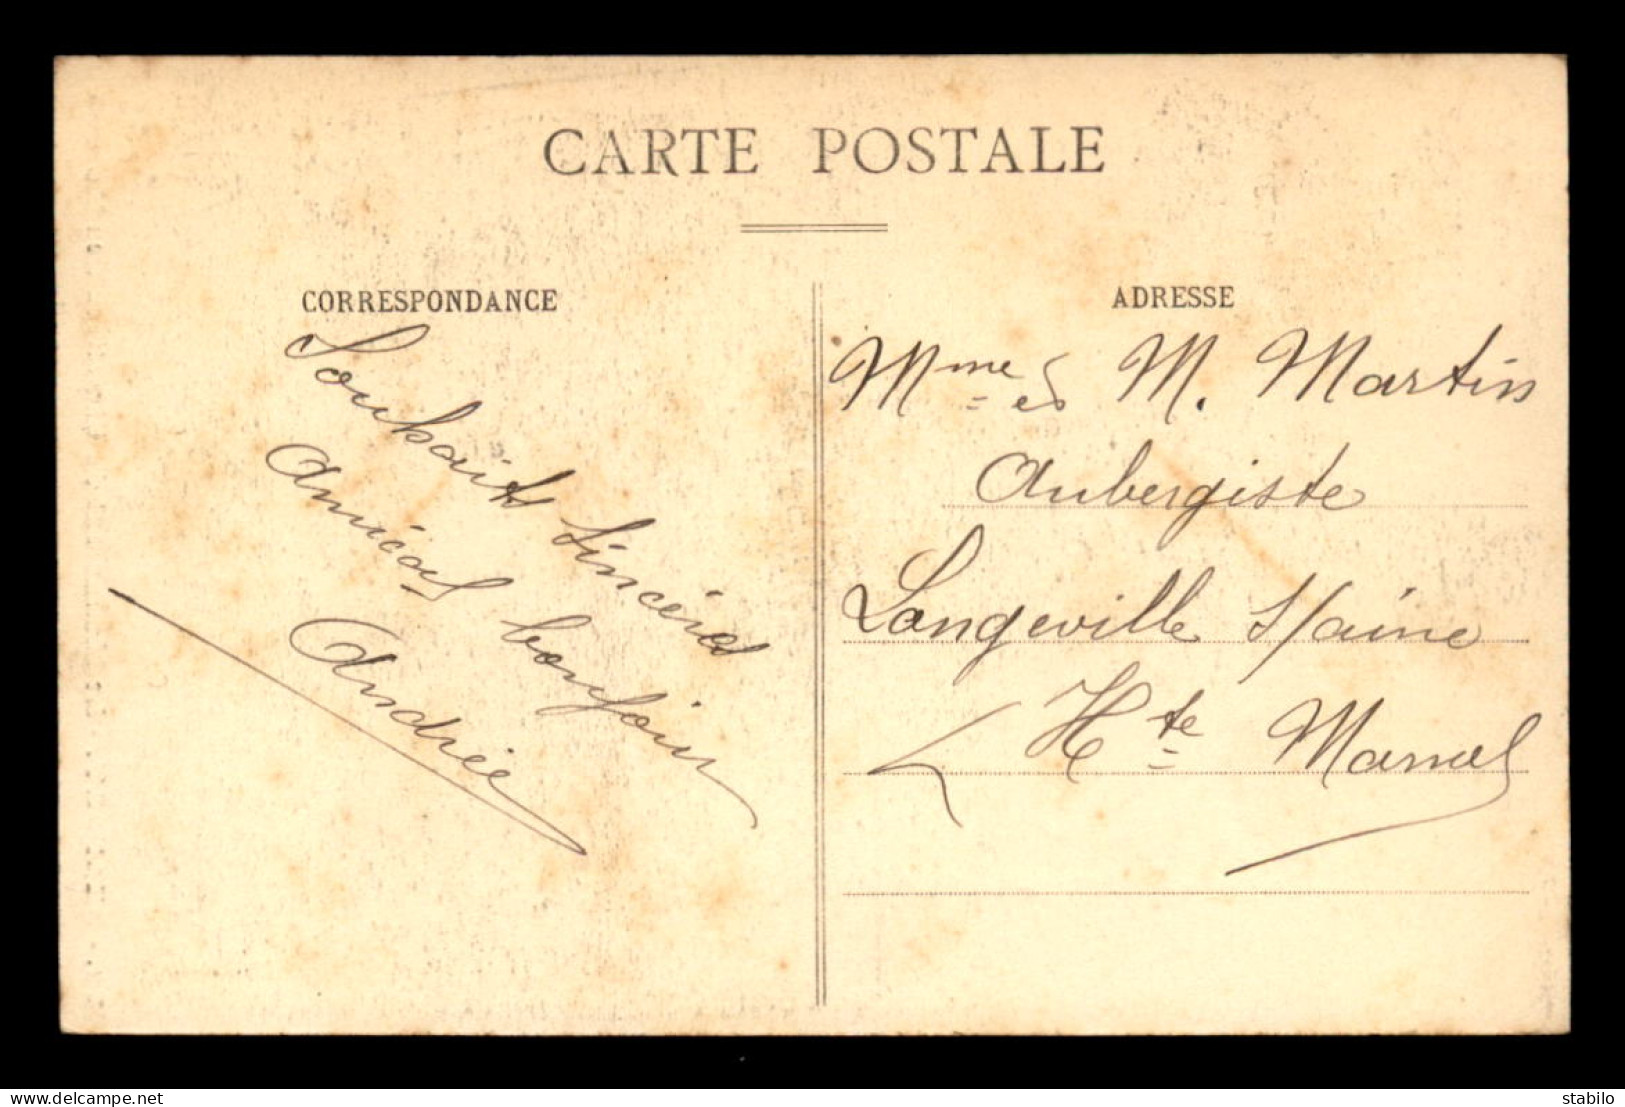 CARTE POSTALE
CORRESPONDANCE
Souhaits sincères
Amical bonjour
Andrée
ADRESSE
Mme et M. Martin
Aubergiste
Longeville s/aine
Hte Marne
delcampe.net
stabilo